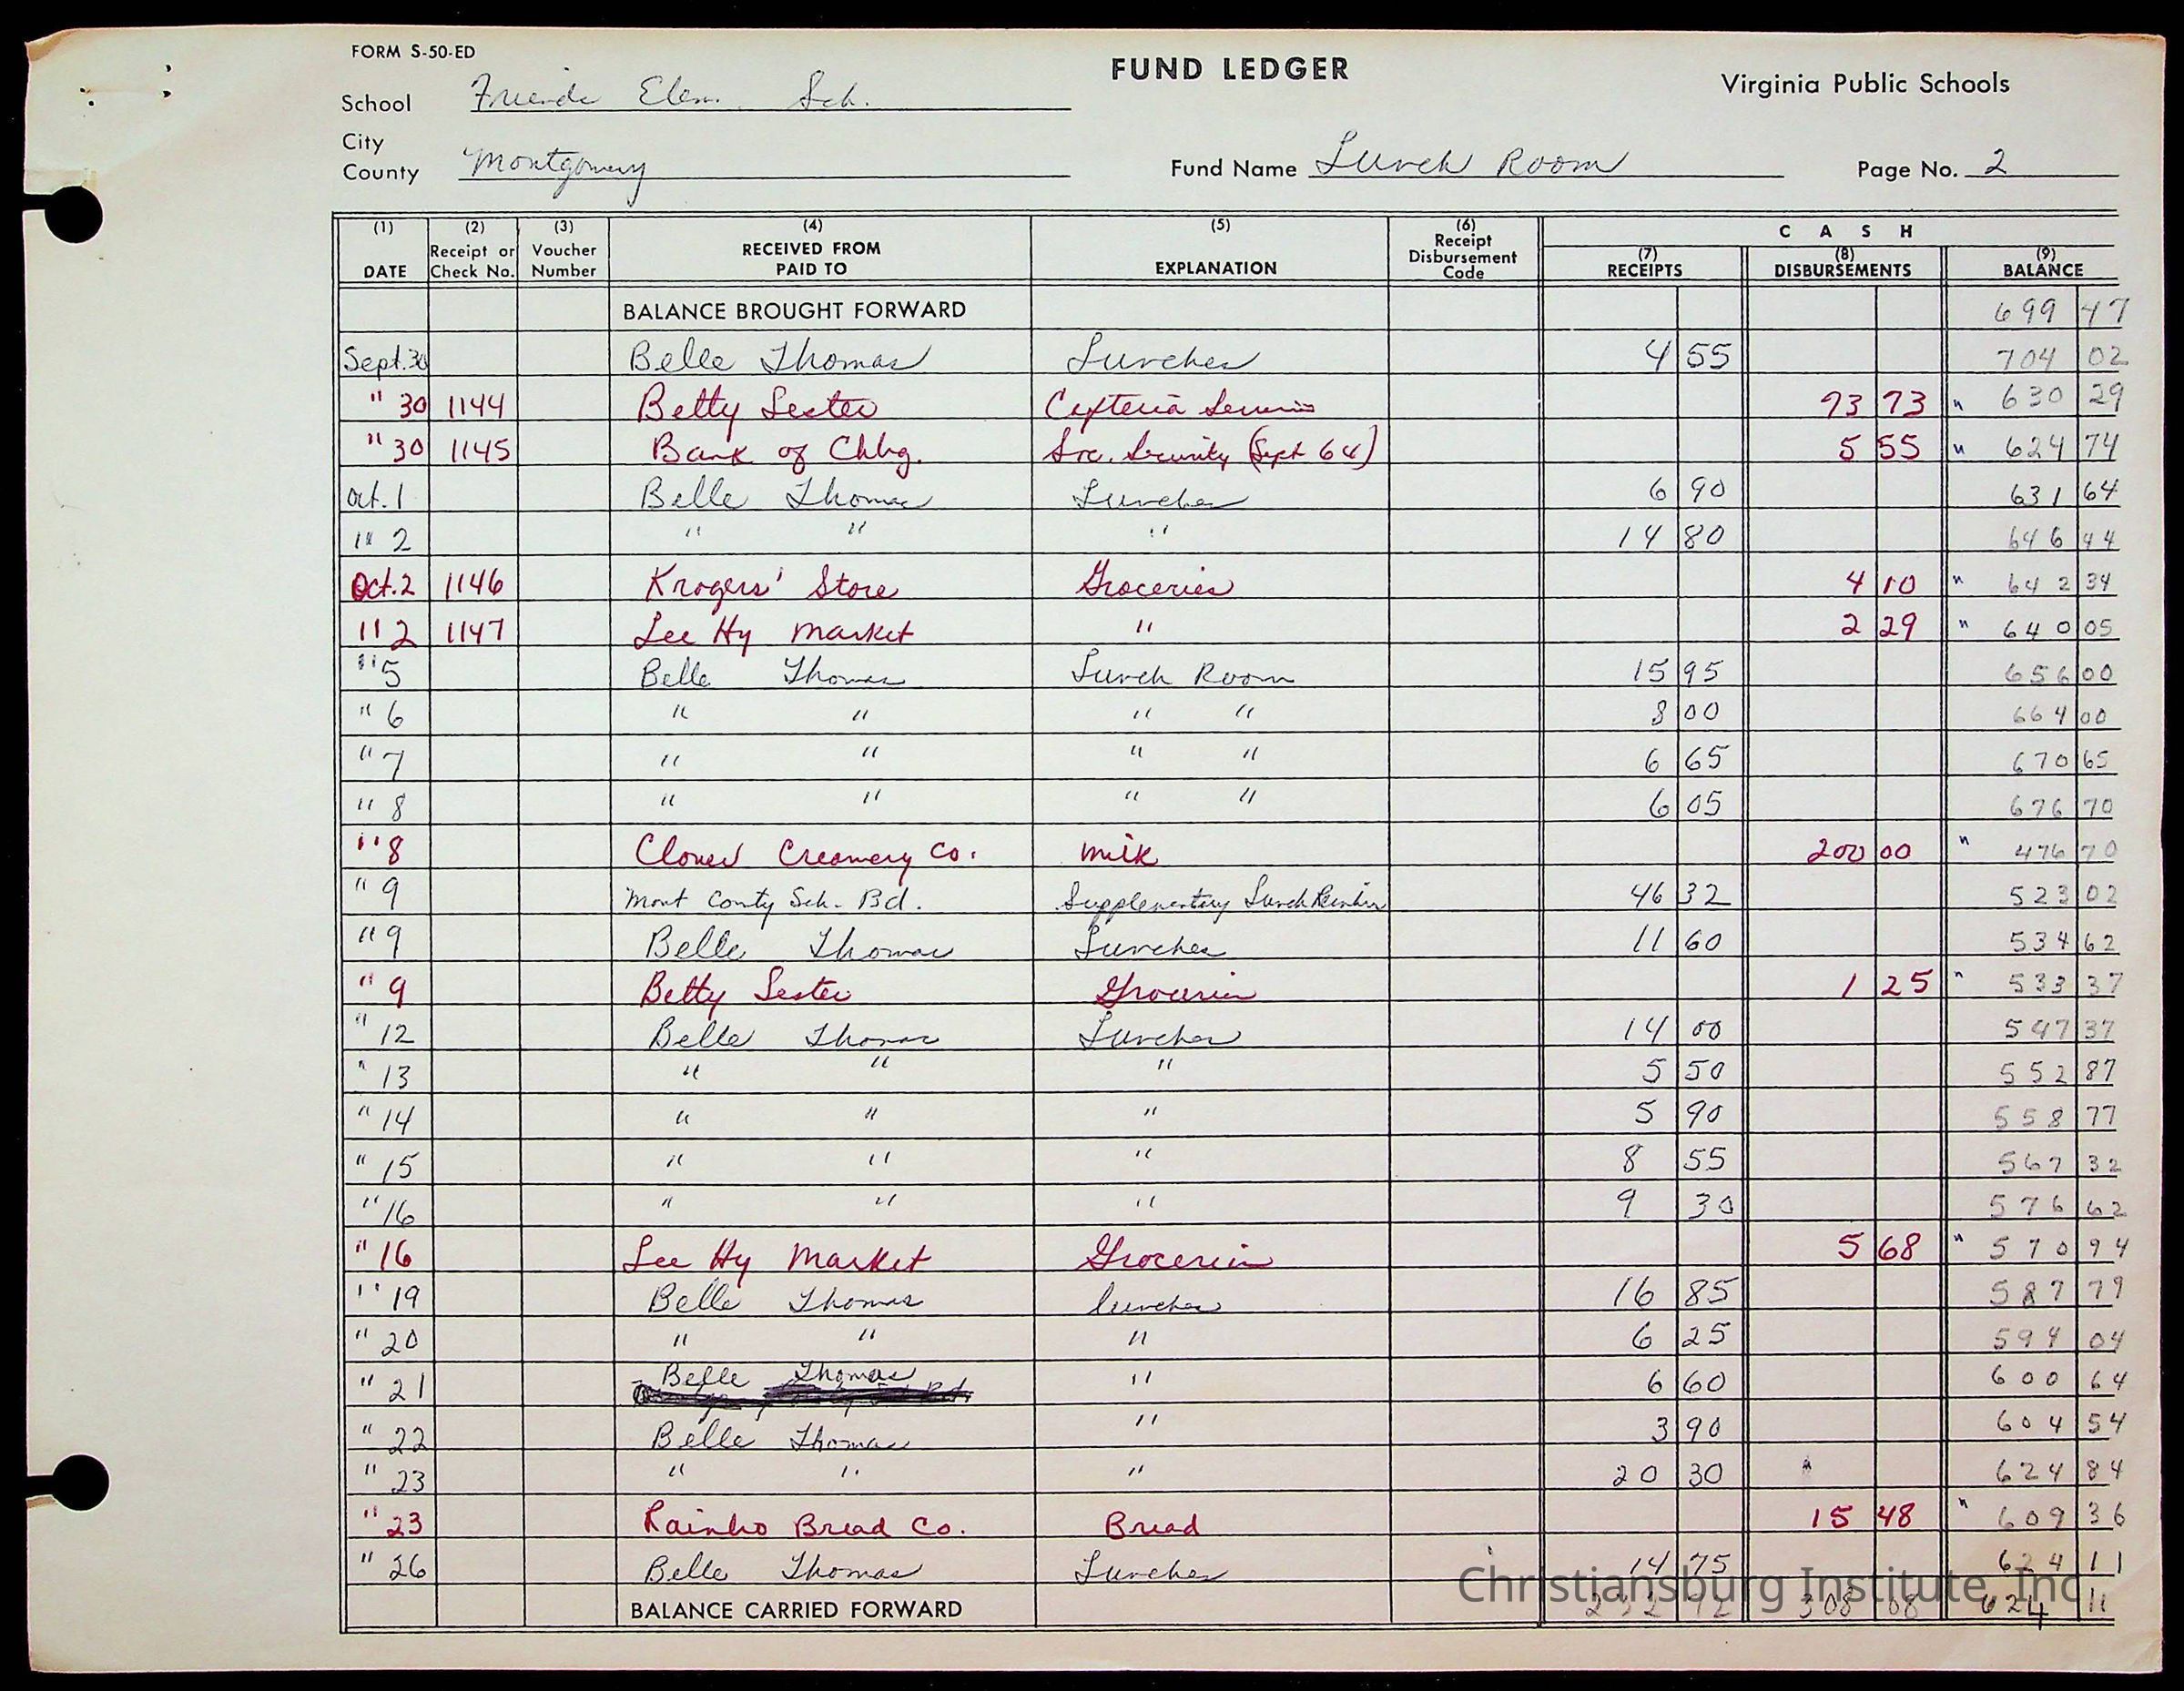 FORM S-50-ED
FUND LEDGER
Virginia Public Schools
School Friends Elem. Sch.
City
County Montgomery
Fund Name Lunch Room
Page No. 2
(1) DATE (2) Receipt or Check No. (3) Voucher Number (4) RECEIVED FROM PAID TO (5) EXPLANATION (6) Receipt Disbursement Code C A S H (7) RECEIPTS (8) DISBURSEMENTS (9) BALANCE
BALANCE BROUGHT FORWARD 699 47
Sept. 30 Belle Thomas Lunches 4 55 704 02
" 30 1144 Betty Lester Cafteria Services 73 73 " 630 29
" 30 1145 Bank of Chbg. Soc. Security (Sept 64) 5 55 " 624 74
Oct. 1 Belle Thomas Lunches 6 90 631 64
" 2 " " " 14 80 646 44
Oct. 2 1146 Krogers' Store Groceries 4 10 " 642 34
" 2 1147 Lee Hy Market " 2 29 " 640 05
" 5 Belle Thomas Lunch Room 15 95 656 00
" 6 " " " " 8 00 664 00
" 7 " " " " 6 65 670 65
" 8 " " " " 6 05 676 70
" 8 Clover Creamery Co. Milk 200 00 " 476 70
" 9 Mont County Sch. Bd. Supplementary Lunch 46 32 523 02
" 9 Belle Thomas Lunches 11 60 534 62
" 9 Betty Lester Groceries 1 25 " 533 37
" 12 Belle Thomas Lunches 14 00 547 37
" 13 " " " 5 50 552 87
" 14 " " " 5 90 558 77
" 15 " " " 8 55 567 32
" 16 " " " 9 30 576 62
" 16 Lee Hy Market Groceries 5 68 " 570 94
" 19 Belle Thomas lunches 16 85 587 79
" 20 " " " 6 25 594 04
" 21 Belle Thomas " 6 60 600 64
" 22 Belle Thomas " 3 90 604 54
" 23 " " " 20 30 624 84
" 23 Rainbo Bread Co. Bread 15 48 " 609 36
" 26 Belle Thomas Lunches 14 75 624 11
BALANCE CARRIED FORWARD 232 72 308 08 624 11
Christiansburg Institute, Inc.